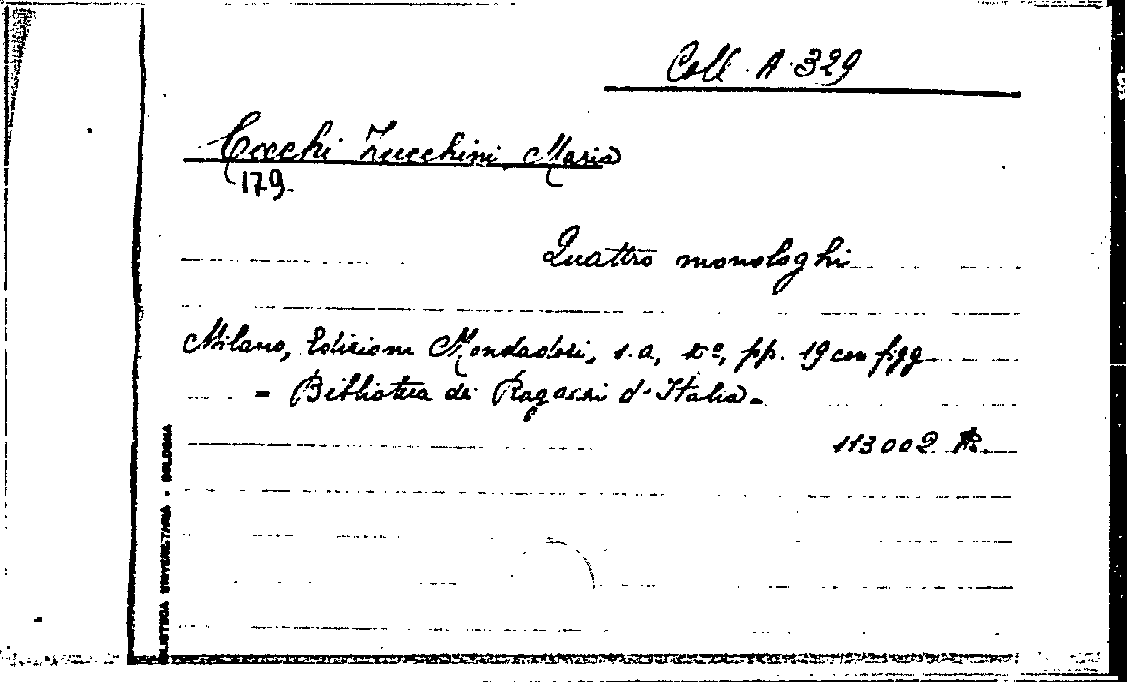 Coll. A. 329
Cocchi Zucchini Maria
179.
Quattro monologhi
Milano, Edizioni Mondadori, s.a., pp. 19 con figg
= Biblioteca dei Ragazzi d'Italia =
113002
BIBLIOTECA UNIVERSITARIA - BOLOGNA